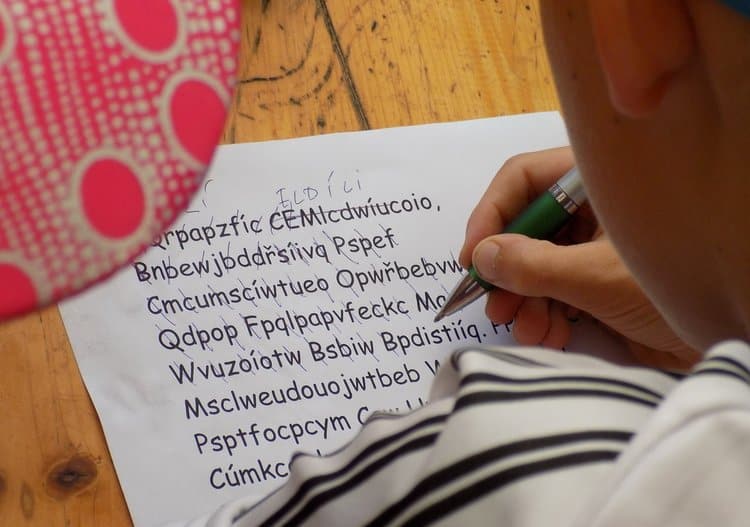 ILDÍLI
Qrpapzfíc CEMlcdwíucoio,
Bnbewjbddřsíivq Pspef
Cmcumscíwtueo Opwřbebvw
Qdpop Fpqlpapvfeckc
Wvuzoíotw Bsbiw Bpdistííq.
Msclweudouojwtbeb
Psptfocpcym